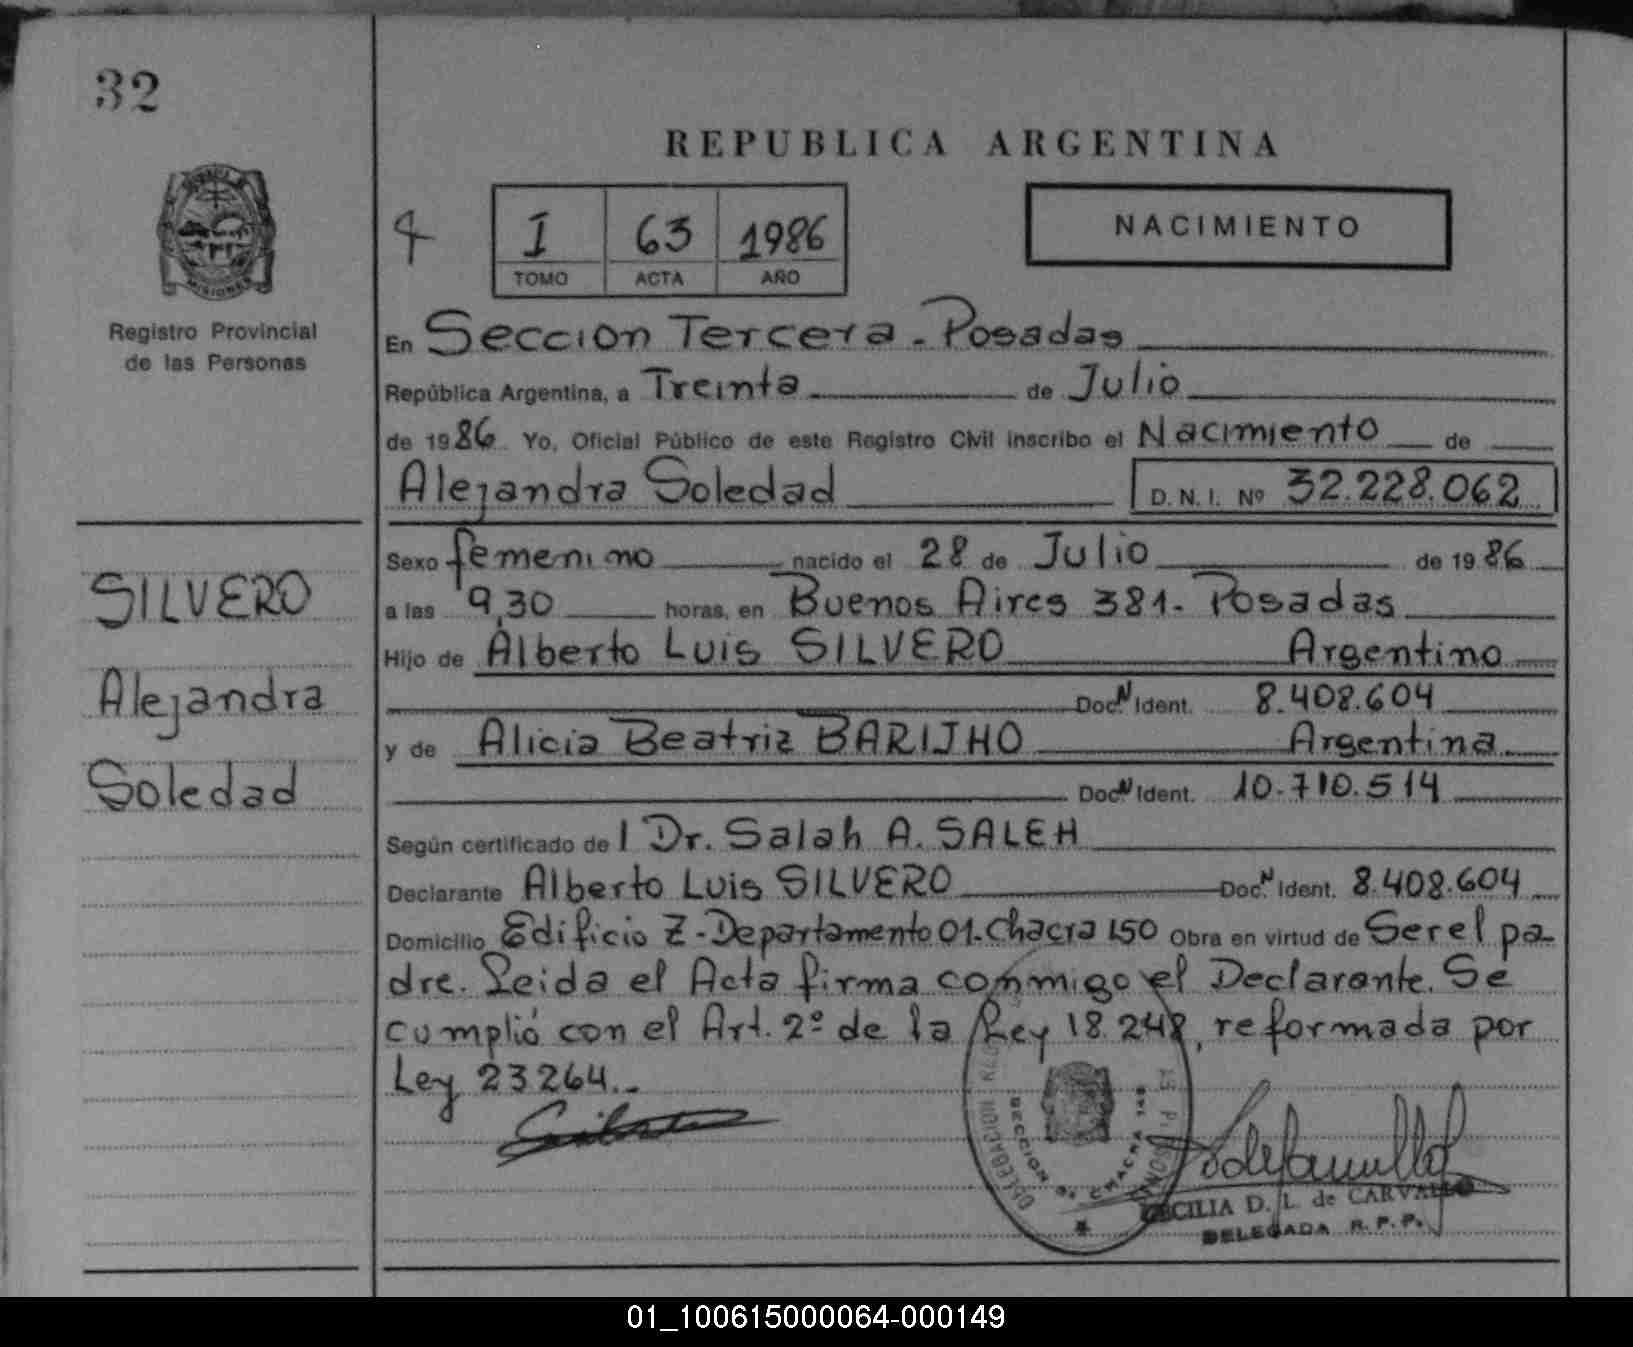 32
REPUBLICA ARGENTINA
MISIONES
Registro Provincial
de las Personas
4
I 63 1986
TOMO ACTA AÑO
NACIMIENTO
En Seccion Tercera - Posadas
República Argentina, a Treinta de Julio
de 1986 Yo, Oficial Público de este Registro Civil inscribo el Nacimiento de
Alejandra Soledad D. N. I. Nº 32.228.062
Sexo femenino nacido el 28 de Julio de 1986
a las 9,30 horas, en Buenos Aires 381- Posadas
Hijo de Alberto Luis SILVERO Argentino
Doc. N Ident. 8.408.604
y de Alicia Beatriz BARIJHO Argentina
Doc. N Ident. 10.710.514
Según certificado de l Dr. Salah A. SALEH
Declarante Alberto Luis SILVERO Doc. N Ident. 8.408.604
Domicilio Edificio Z - Departamento 01- Chacra 150 Obra en virtud de Ser el pa-
dre. Leida el Acta firma conmigo el Declarante. Se
cumplió con el Art. 2º de la Ley 18.248, reformada por
Ley 23264.-
SILVERO
Alejandra
Soledad
DELEGACION
SECCION CHACRA
CECILIA D. L. de CARVALLO
DELEGADA R. P. P.
01_100615000064-000149